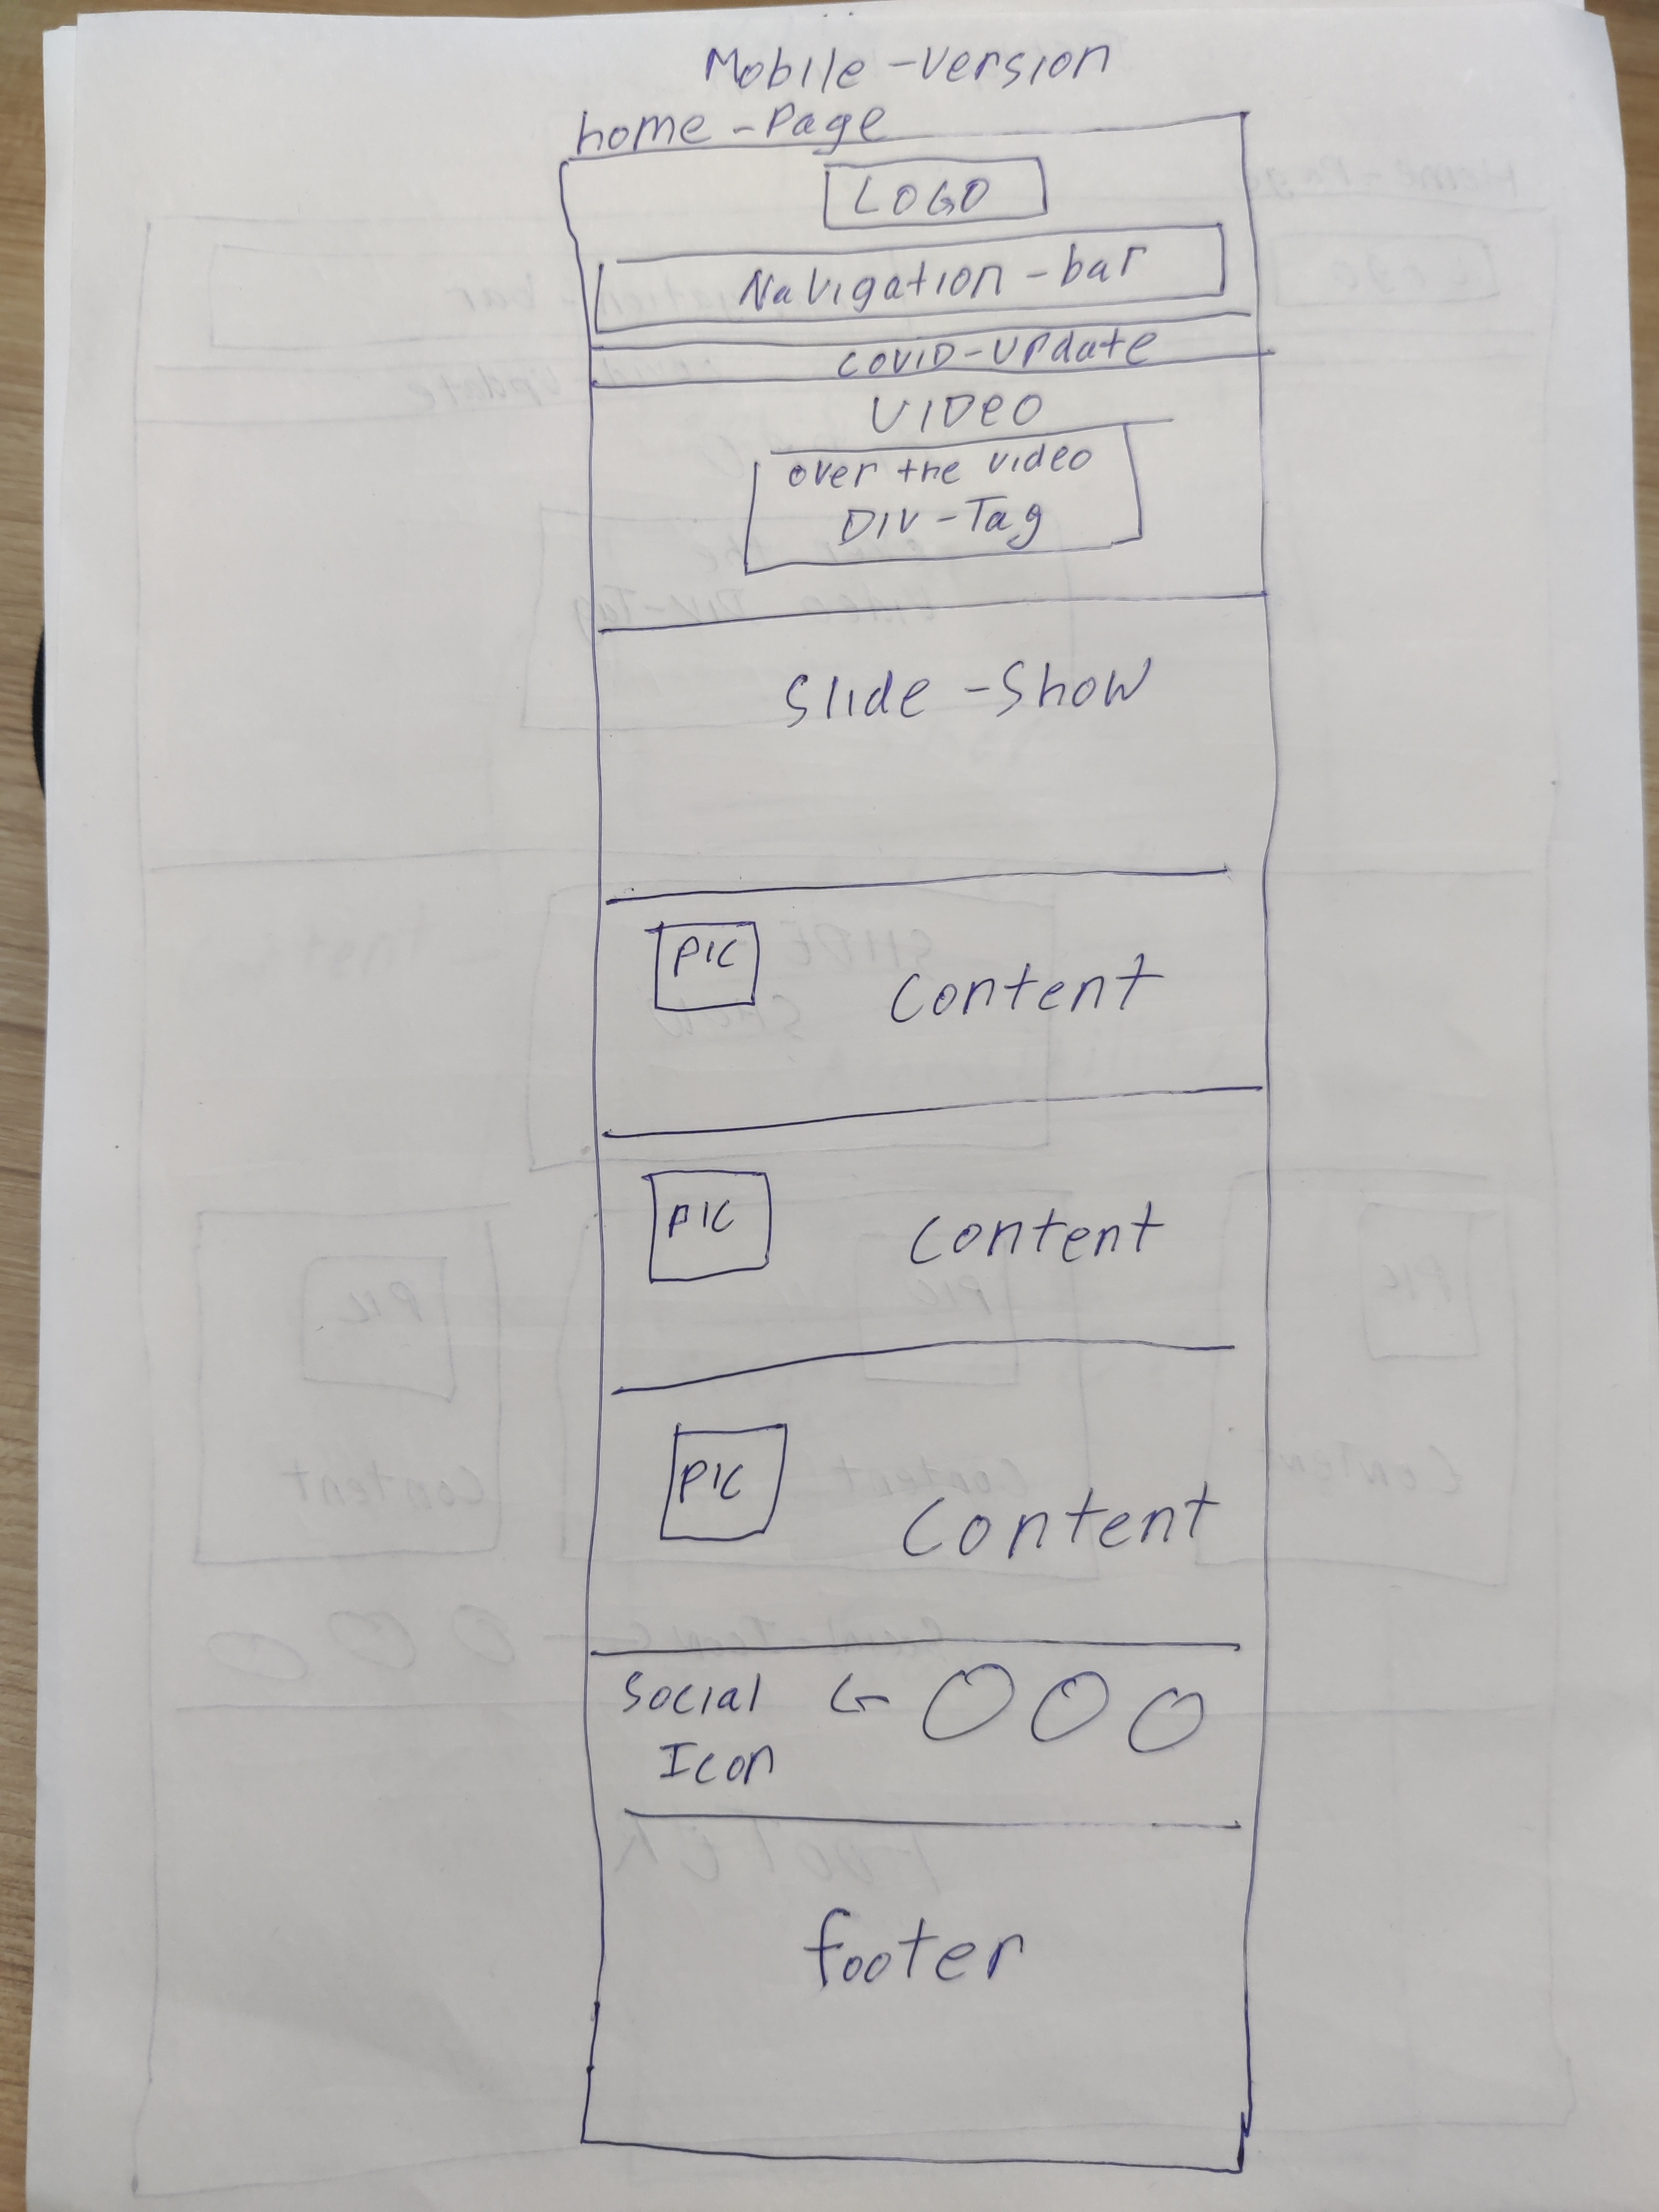 Mobile-Version
home-Page
LOGO
Navigation-bar
COVID-Update
VIDEO
over the video
DIV-Tag
Slide-Show
PIC
Content
PIC
Content
PIC
Content
Social
Icon
footer